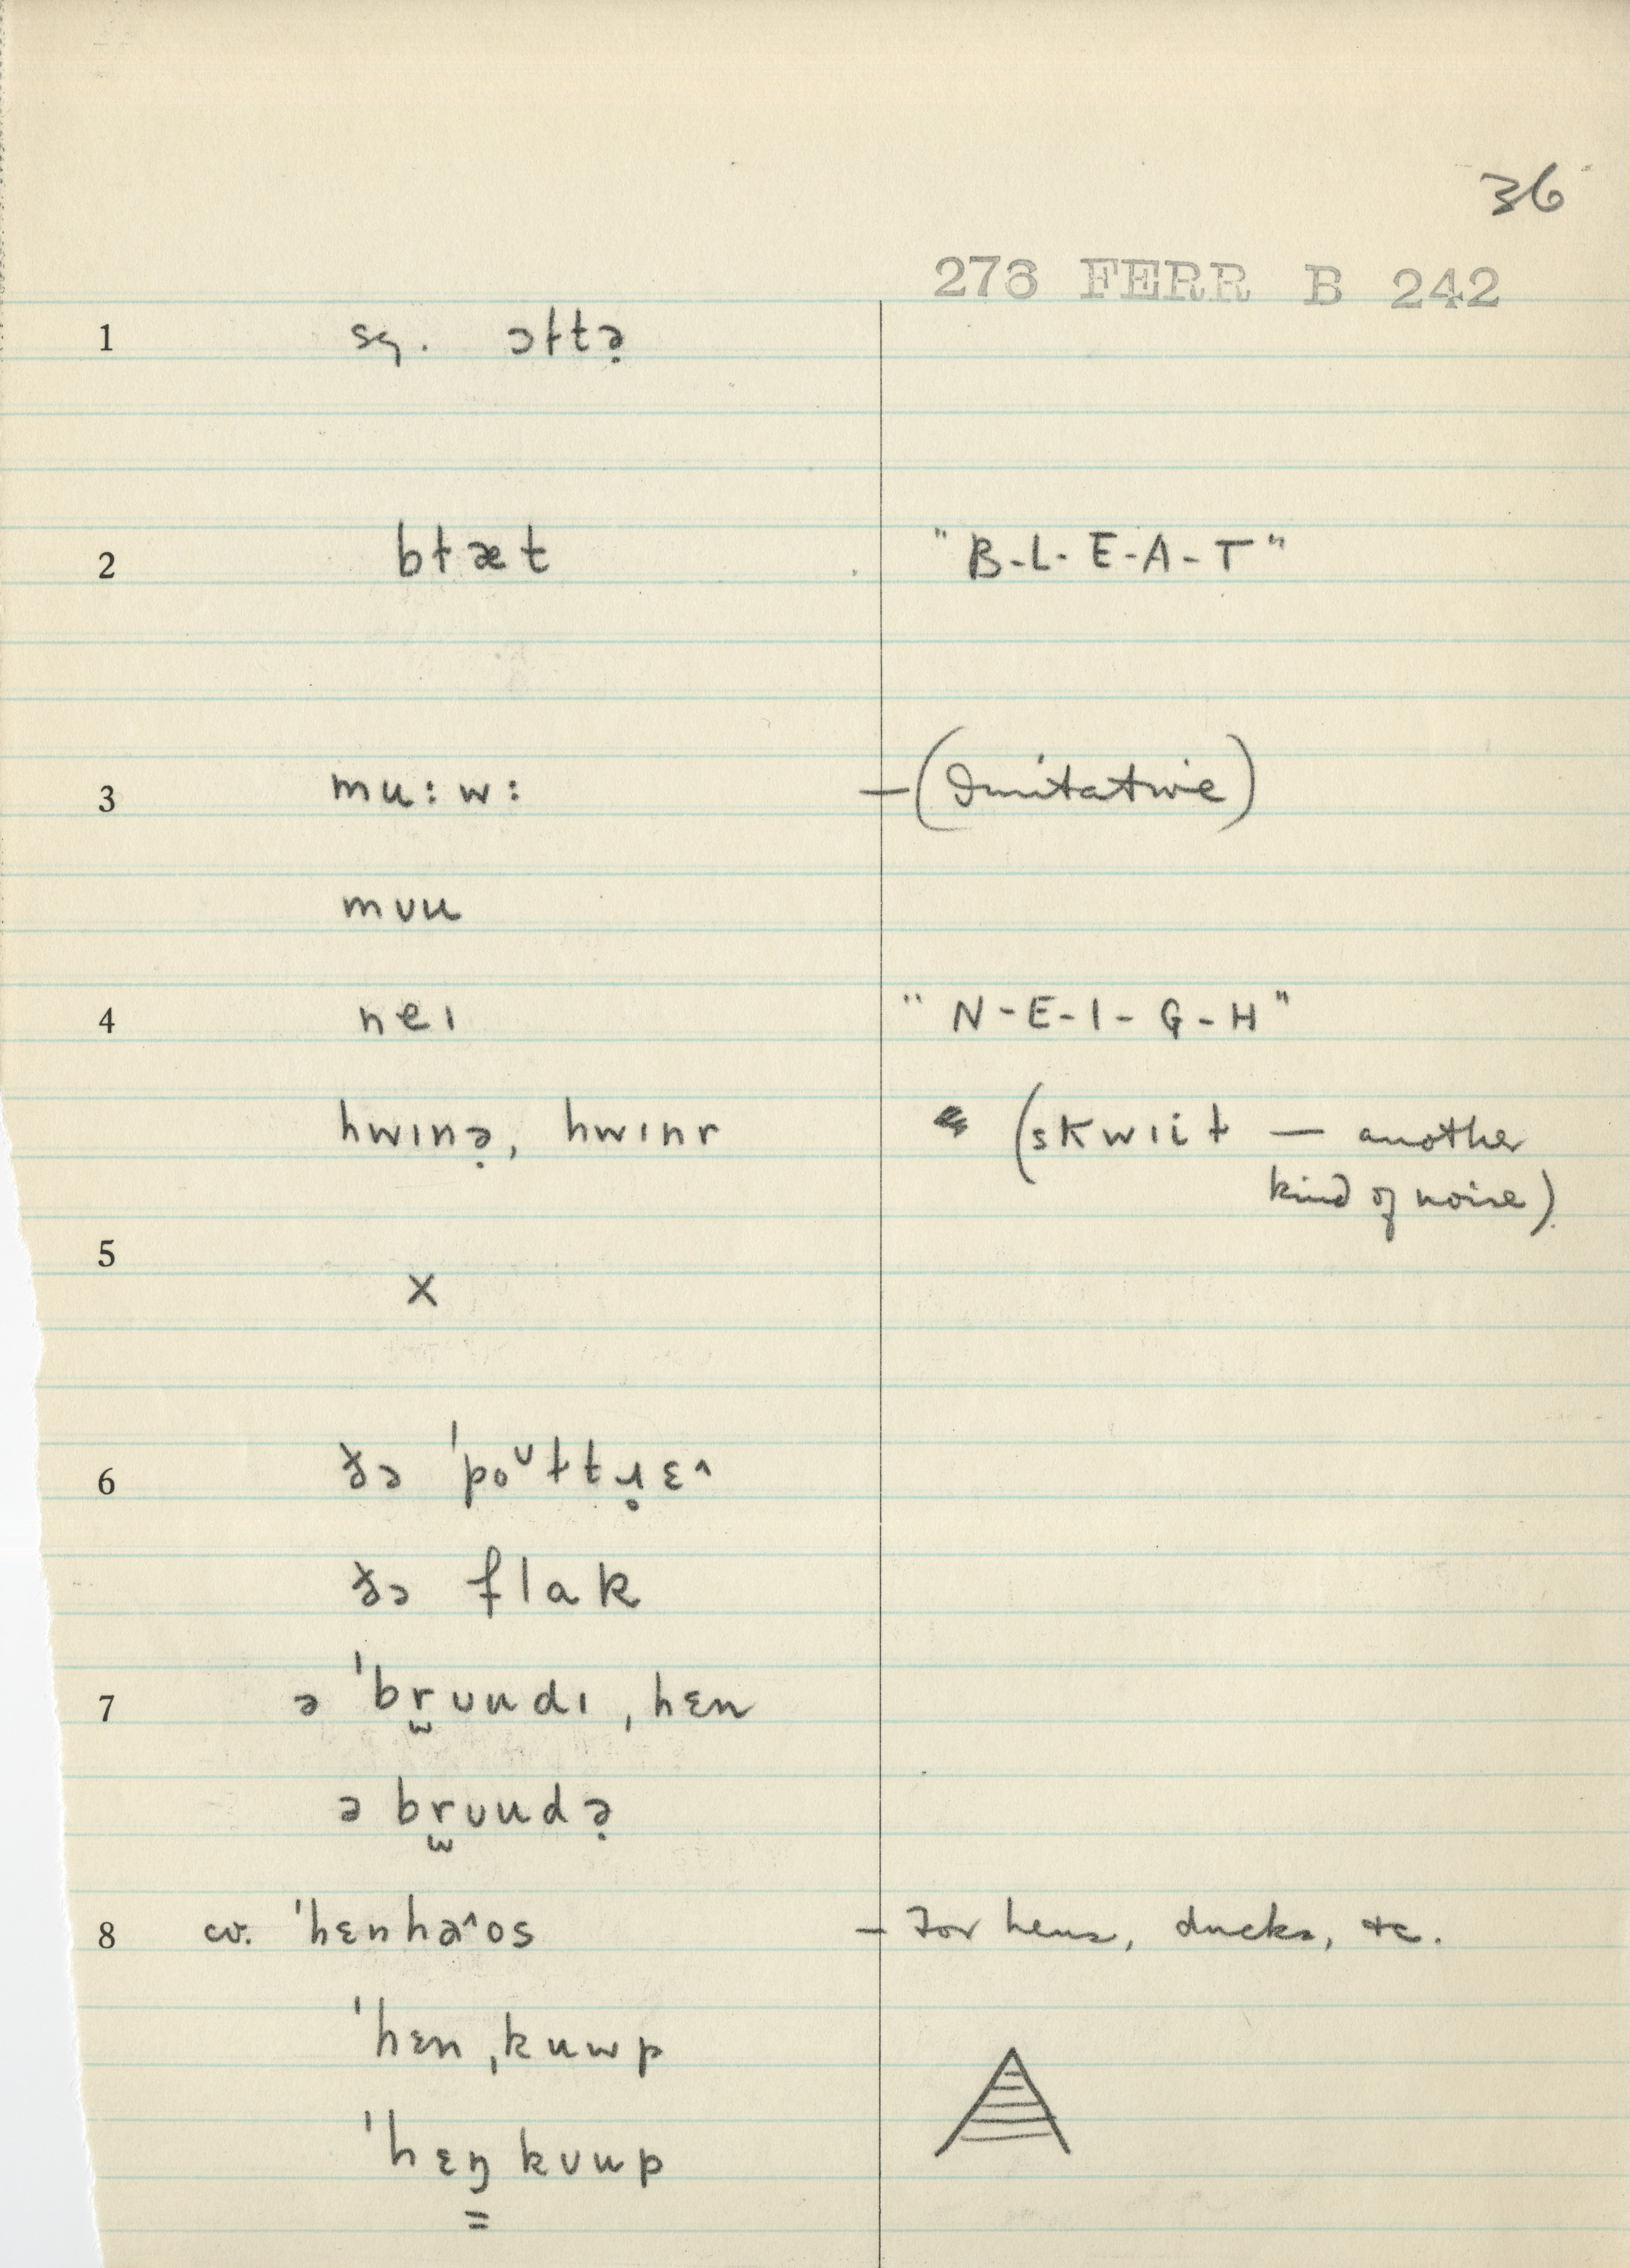 36
276 FERR B 242
1 sq. ɔɫtə̣
2 bɫæt "B-L-E-A-T"
3 mu:w: —(Imitative)
mʊu
4 neɪ "N-E-I-G-H"
hwɪnə̣, hwɪnr (skwɪiɫ — another
kind of noise)
5 x
6 ðə 'poᵘɫtɹ̥ɛ^
ðə flak
7 ə 'br̫ʊudɪ ˌhɛn
ə br̫ʊudə̣
8 cv. 'hɛnha^os — For hens, ducks, etc.
'hɛn ˌkuwp
'hɛŋ̳ kʊup